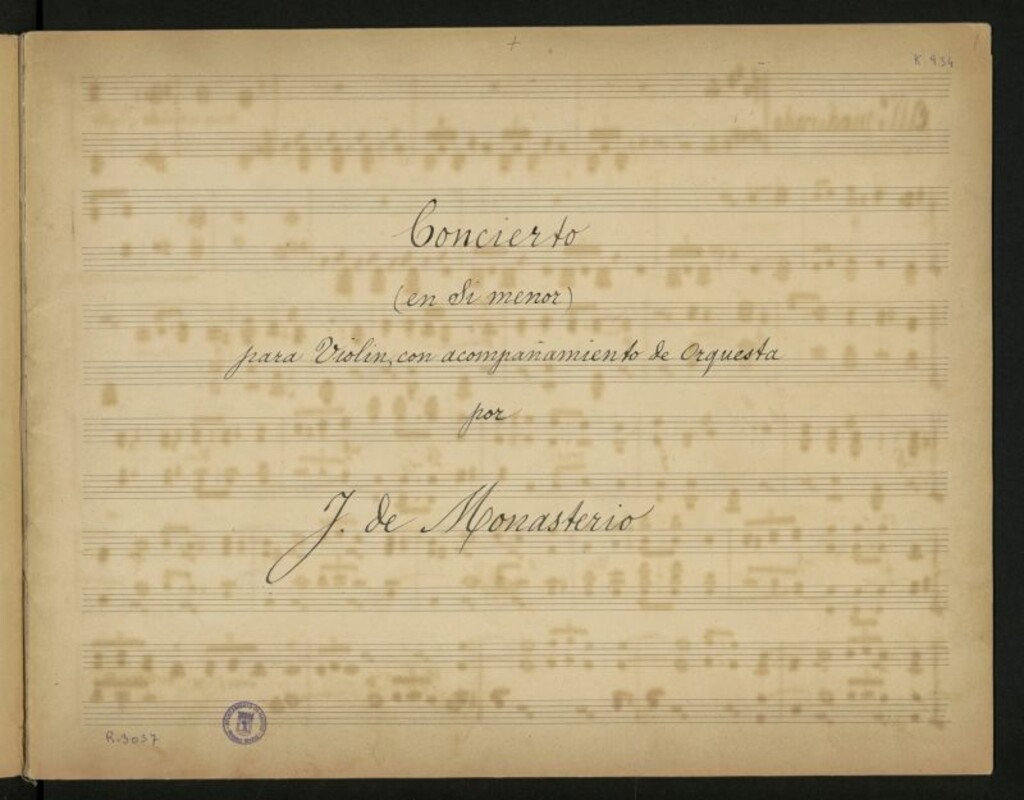 K. 934
Concierto
(en Si menor)
para Violin, con acompañamiento de Orquesta
por
J. de Monasterio
R. 9037